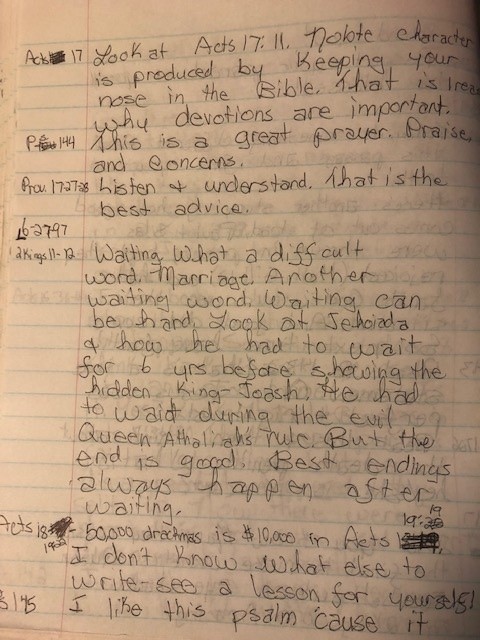 Acts 17 Look at Acts 17:11. Noble character
is produced by keeping your
nose in the Bible. That is
why devotions are important.
Ps 144 This is a great prayer. Praise,
and concerns.
Prov. 17-27-28 Listen & understand. That is the
best advice.
6-27-97
2 Kings 11-12 Waiting. What a difficult
word. Marriage. Another
waiting word. Waiting can
be hard. Look at Jehoiada
& how he had to wait
for 6 yrs before showing the
hidden King-Joash. He had
to waid during the evil
Queen Athaliah's rule. But the
end is good. Best endings
always happen after
waiting.
Acts 18- 50,000 drachmas is $10,000 in Acts 19:19
I don't know what else to
write-see a lesson for yourself!
145 I like this psalm 'cause it